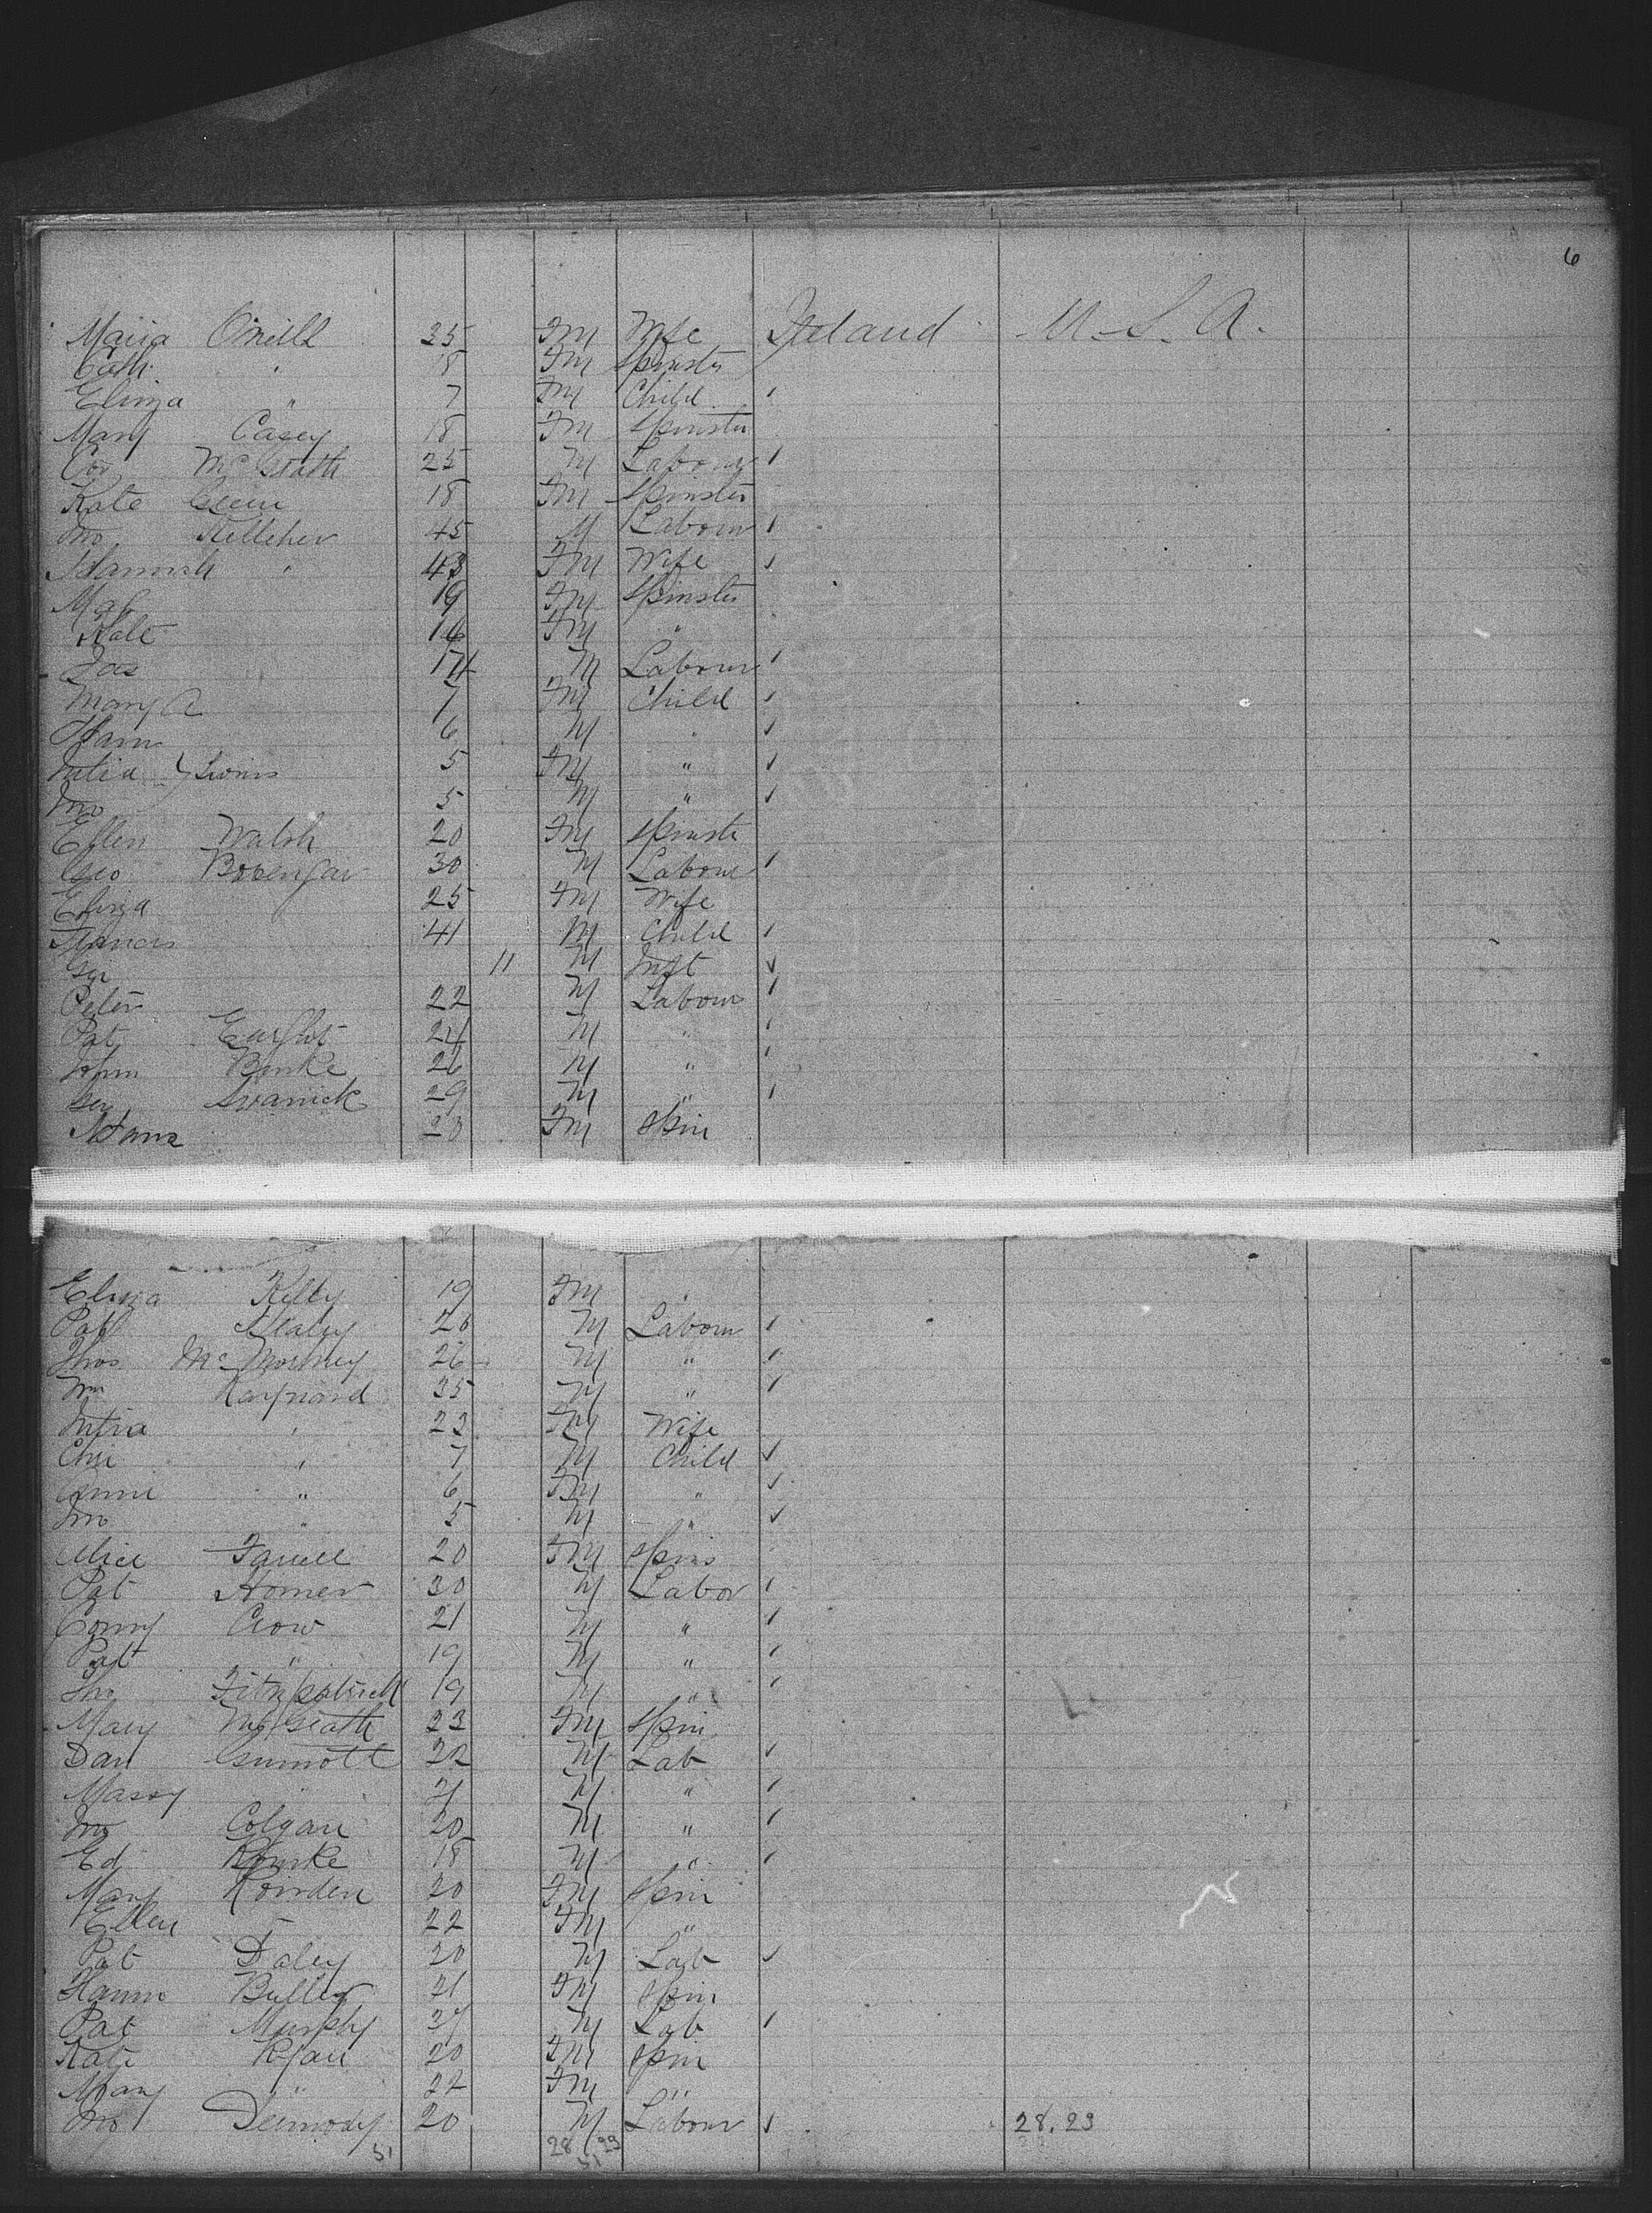 6
Maria Oneill 25 Fm Wife Ireland U.S.A.
Cath " 8 Fm Spinster
Eliza " 7 Fm Child
Mary Casey 18 Fm Spinster
Con McGrath 25 M Labour
Kate 18 Fm Spinster
Jno Kelleher 45 M Labour
Hannah " 43 Fm Wife
19 Fm Spinster
Kate 16 Fm "
Jas M Labour
Mary A 7 Fm Child
6 M "
Julia } Twins 5 Fm "
Jno 5 M "
Ellen Walsh 20 Fm Spinste
Geo 30 M Labour
Eliza 25 Fm Wife
Francis 4 M Child
11 M Inft
Peter 22 M Labour
Pat 24 M "
John Burke 26 M "
Swanick 29 M "
Fm Spin
Eliza Kelly 19 Fm "
Pat Healey 26 M Labour
Thos 26 M "
Wm Raynard 35 M "
Julia " 23 Fm Wife
Chr " 7 M Child
Annie " 6 Fm "
Jno " 5 M "
Alice 20 Fm Spins
Pat Homer 30 M Labor
Crow 21 M "
Pat " 19 M "
Tho Fitzpatrick 19 M "
Mary McGrath 23 Fm Spin
Dan 22 M Lab
Massy " 21 M "
Jno Colgan 20 M "
Ed Rourke 18 M "
Mary 20 Fm Spin
Ellen 22 Fm "
Pat Daley 20 M Lab
Butler 21 Fm Spin
Pat Murphy M Lab
Kate Ryan 20 Fm Spin
Mary " 22 Fm "
Jno Dermody 20 M Labour 28.23
51 28 23
51